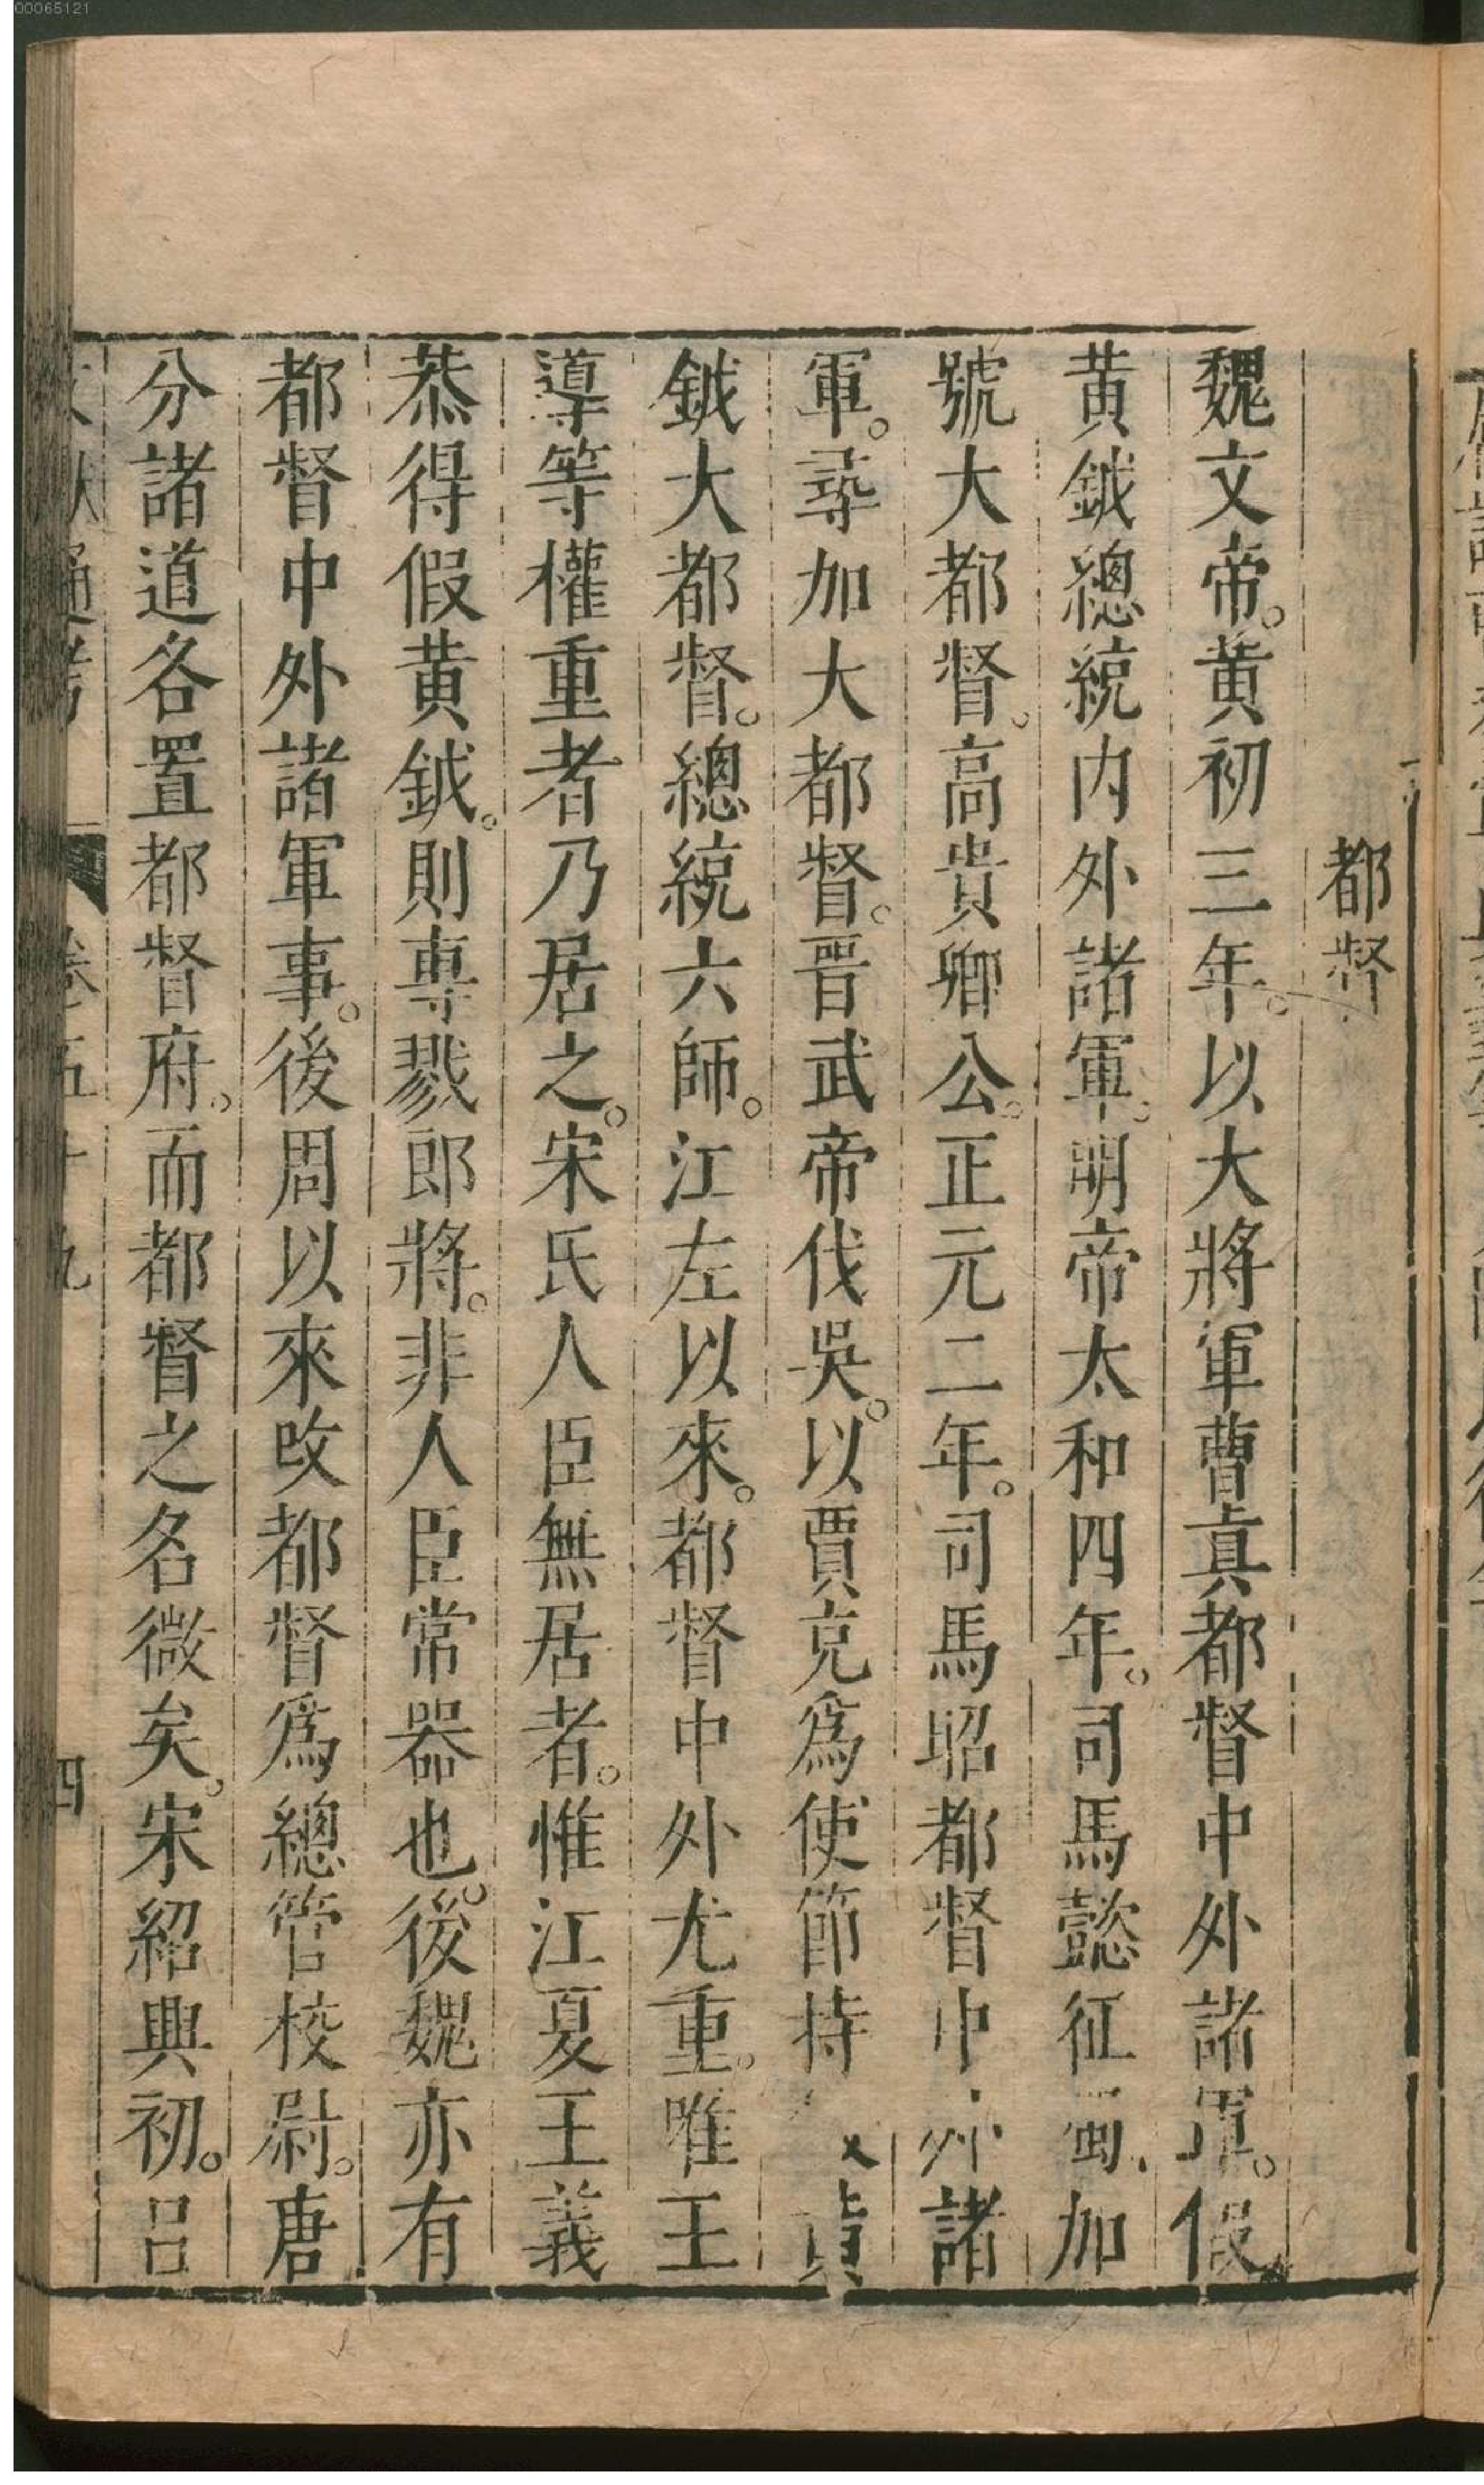 00065121
都督
魏文帝。黃初三年。以大將軍曹真都督中外諸軍。假
黃鉞總統內外諸軍。明帝太和四年。司馬懿征蜀、加
號大都督。高貴鄉公。正元二年。司馬昭都督中外諸
軍。尋加大都督。晋武帝伐吳。以賈充爲使節持
鉞大都督。總統六師。江左以來。都督中外尤重。唯王
導等權重者乃居之。宋氏人臣無居者。惟江夏王義
恭得假黃鉞。則專戮郎將。非人臣常器也。後魏亦有
都督中外諸軍事。後周以來改都督爲總管校尉。唐
分諸道各置都督府。而都督之名微矣。宋紹興初。呂
通考 卷五十九 四